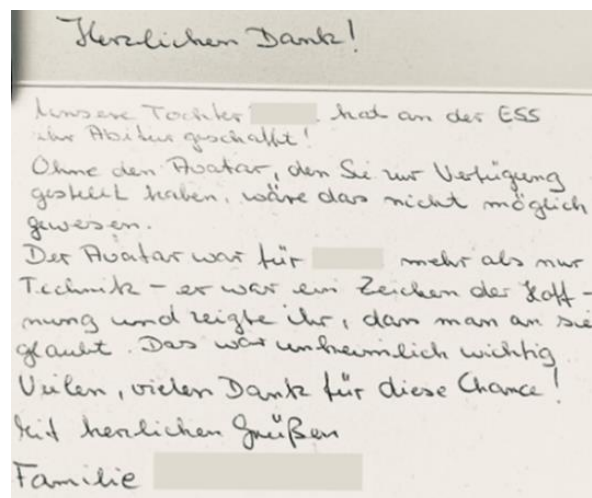 Herzlichen Dank!
Unsere Tochter hat an der ESS
ihr Abitur geschafft!
Ohne den Avatar, den Sie zur Verfügung
gestellt haben, wäre das nicht möglich
gewesen.
Der Avatar war für mehr als nur
Technik - er war ein Zeichen der Hoff-
nung und zeigte ihr, dass man an sie
glaubt. Das war unheimlich wichtig
Vielen, vielen Dank für diese Chance!
Mit herzlichen Grüßen
Familie